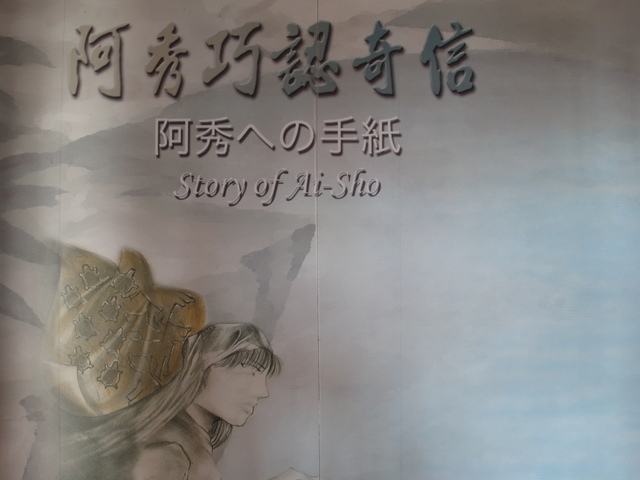 阿秀巧認奇信
阿秀への手紙
Story of Ai-Sho